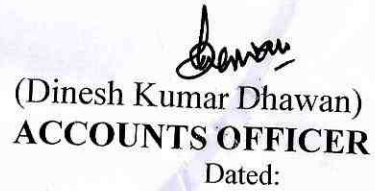 (Dinesh Kumar Dhawan)
ACCOUNTS OFFICER
Dated: